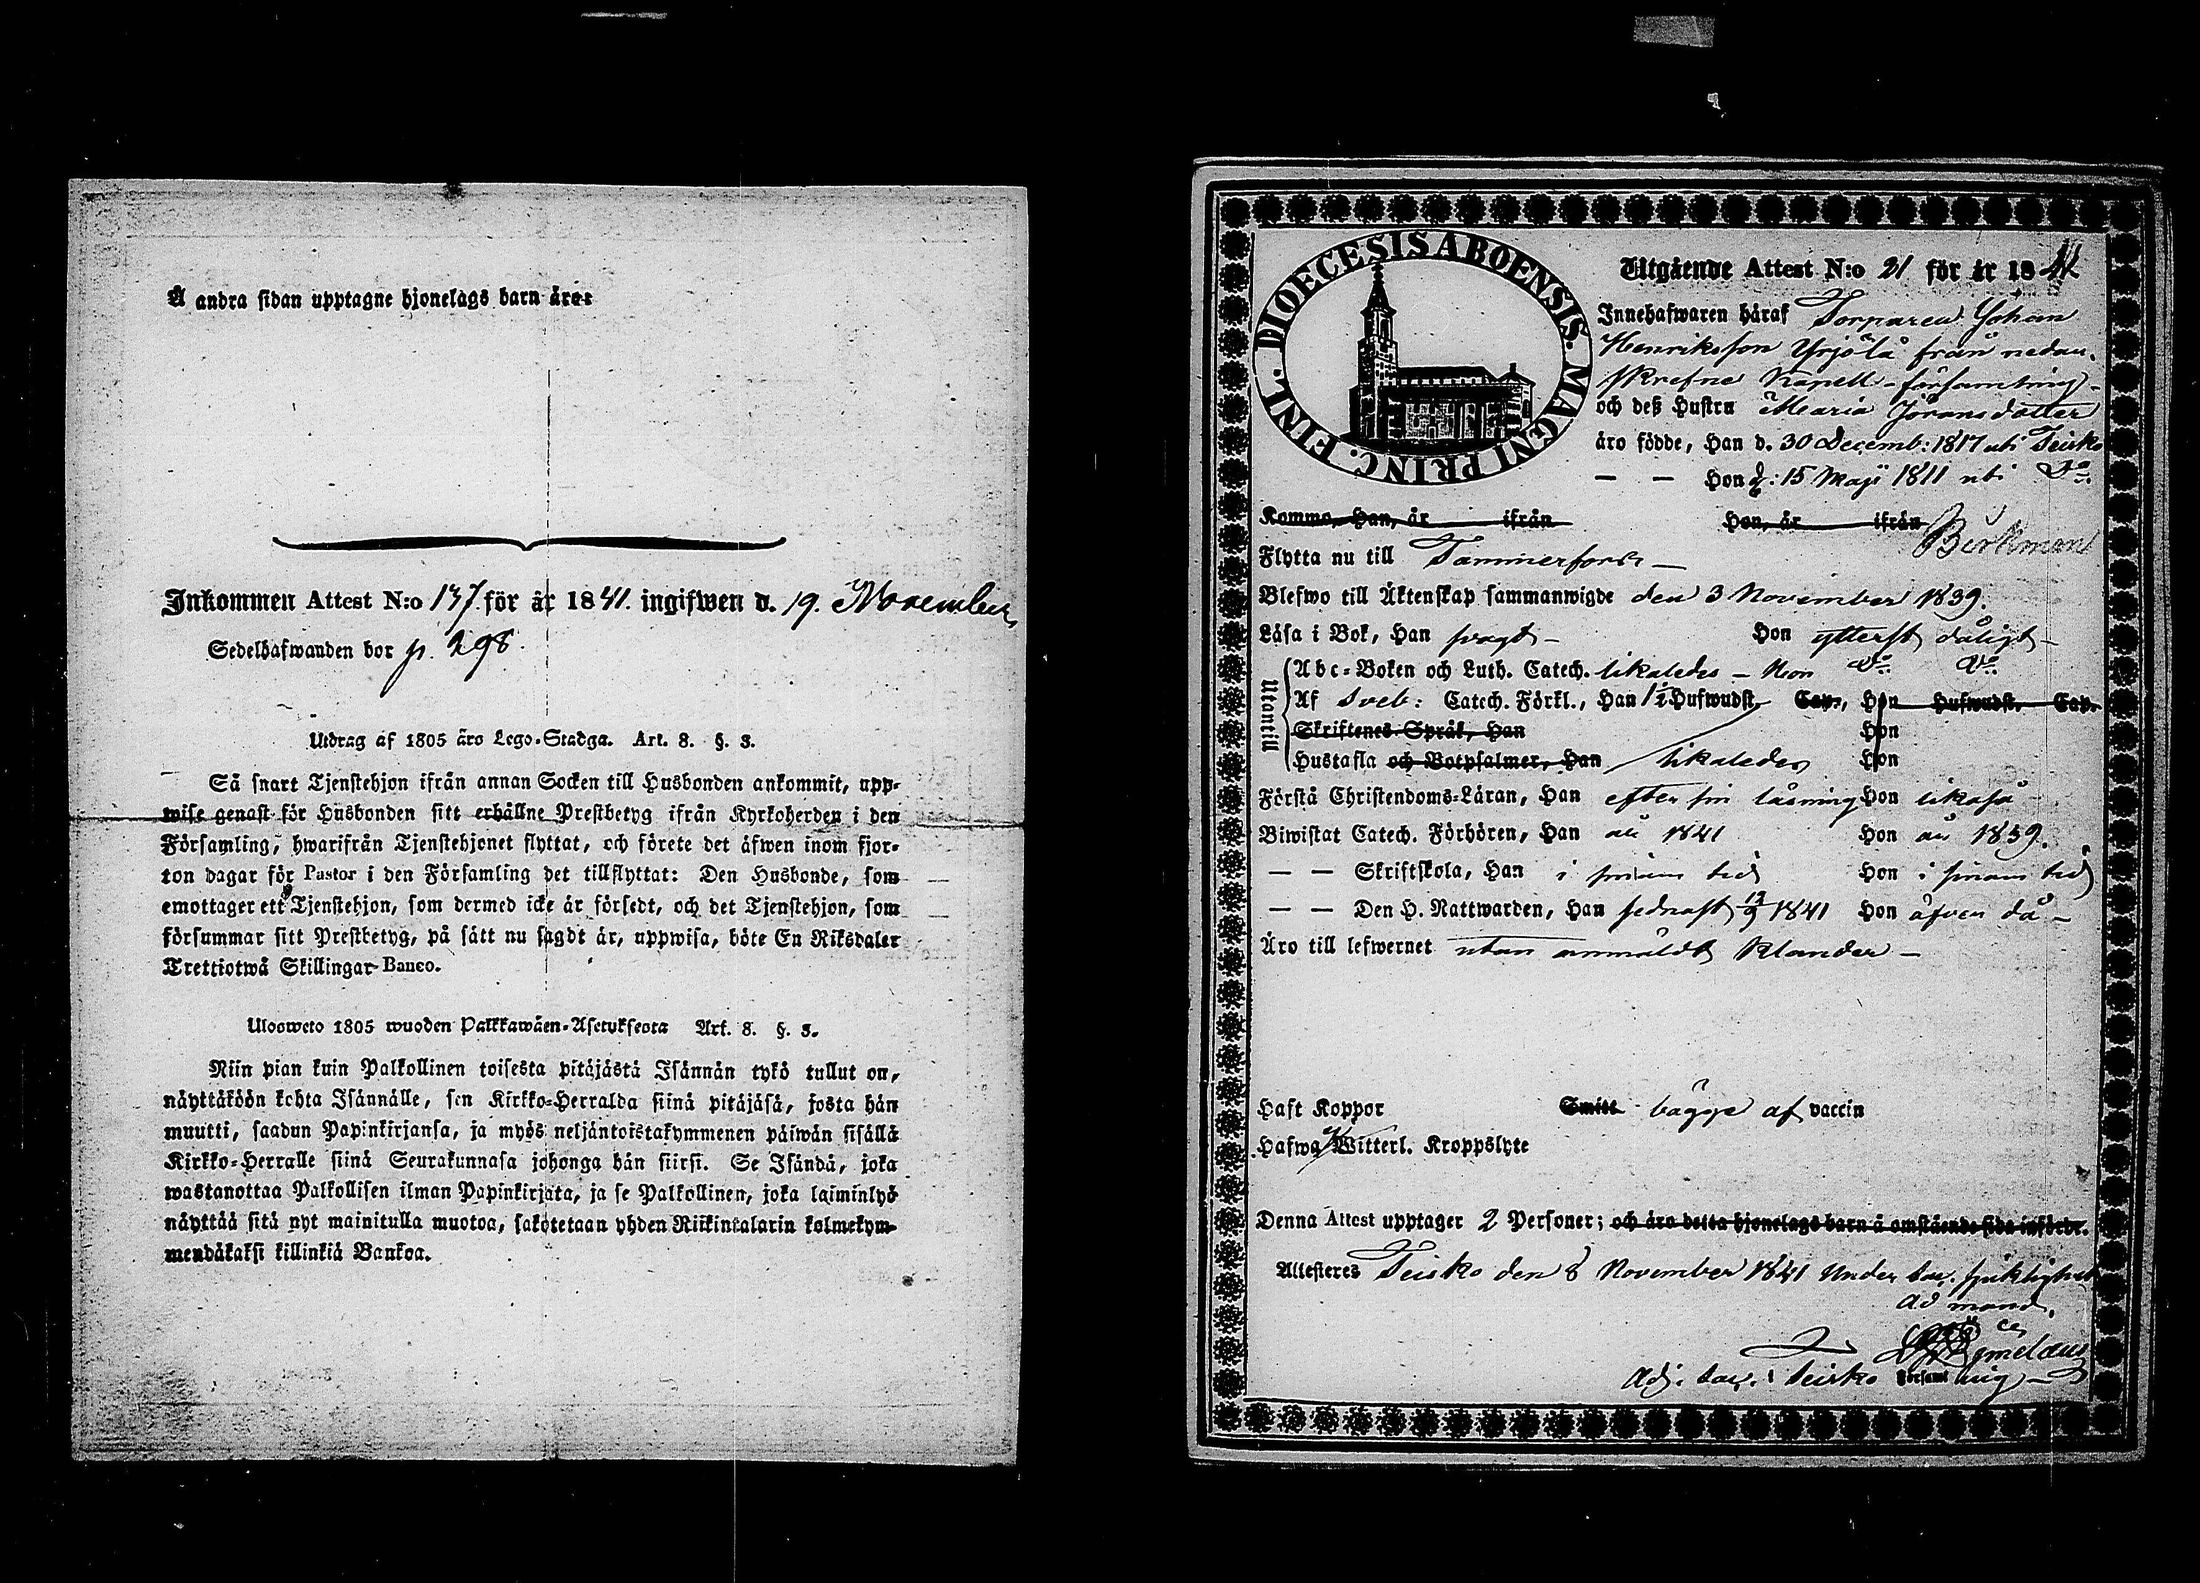 Å andra sidan upptagne hjonelags barn äro:
Inkommen Attest N:o 137. för år 1841. ingifwen d. 19. November
Sedelhafwanden bor p. 298.
Utdrag af 1805 års Lego-Stadga. Art. 8. §. 3.
Så snart Tjenstehjon ifrån annan Socken till Husbonden ankommit, upp-
wise genast för Husbonden sitt erhållne Prestbetyg ifrån Kyrkoherden i den
Församling, hwarifrån Tjenstehjonet flyttat, och förete det äfwen inom fjor-
ton dagar för Pastor i den Församling det tillflyttat: Den Husbonde, som
emottager ett Tjenstehjon, som dermed icke är försedt, och det Tjenstehjon, som
försummar sitt Prestbetyg, på sätt nu sagdt är, uppwisa, böte En Riksdaler
Trettiotwå Skillingar Banco.
Ulosweto 1805 wuoden Palkkawäen-Asetuksesta Art. 8. §. 3.
Niin pian kuin Palkollinen toisesta pitäjästä Isännän tykö tullut on,
näyttäköön kohta Isännälle, sen Kirkko-Herralda siinä pitäjäsä, josta hän
muutti, saadun Papinkirjansa, ja myös neljäntoistakymmenen päiwän sisällä
Kirkko-Herralle siinä Seurakunnasa johonga hän siirsi. Se Isändä, joka
wastanottaa Palkollisen ilman Papinkirjata, ja se Palkollinen, joka laiminlyö
näyttää sitä nyt mainitulla muotoa, sakotetaan yhden Riikintalarin kolmekym-
mendäkaksi killinkiä Bankoa.
DIOECESIS ABOENSIS. MAGNI PRINC. FINL.
Utgående Attest N:o 21 för år 1841
Innehafwaren häraf Torparen Johan
Henriksson Yrjölä från nedan-
skrefne Kapell-församling-
och deß Hustru Maria Jöransdotter
äro födde, Han d. 30 Decemb: 1817 uti Teisko
— — Hon d: 15 Maji 1811 uti Do
Komma, Han, år ifrån Hon, år ifrån
Birkman
Flytta nu till Tammerfors —
Blefwo till Äktenskap sammanwigde den 3 November 1839.
Läsa i Bok, Han swagt — Hon ytterst dåligt —
Utantill
Abc-Boken och Luth. Catech. likaledes — Hon Do Do
Af Sveb: Catech. Förkl., Han 1½ Hufwudst. Cap., Hon Hufwudst. Cap.
Skriftenes Språk, Han Hon
Hustafla och Botpsalmer, Han likaledes Hon
Förstå Christendoms-Läran, Han efter sin läsning Hon likaså
Biwistat Catech. Förhören, Han år 1841 Hon år 1839.
— — Skriftskola, Han i sinom tid Hon i sinom tid
— — Den H. Nattwarden, Han sednast 12/9 1841 Hon äfven då —
Äro till lefwernet utan anmäldt klander —
Haft Koppor Smitt bägge af vaccin
Hafwa Witterl. Kroppslyte
Denna Attest upptager 2 Personer; och äro detta hjonelags barn å omstående sida införde.
Attesteres Teisko den 8 November 1841 Under
ad mand.
Adj. Sac. i Teisko Församling